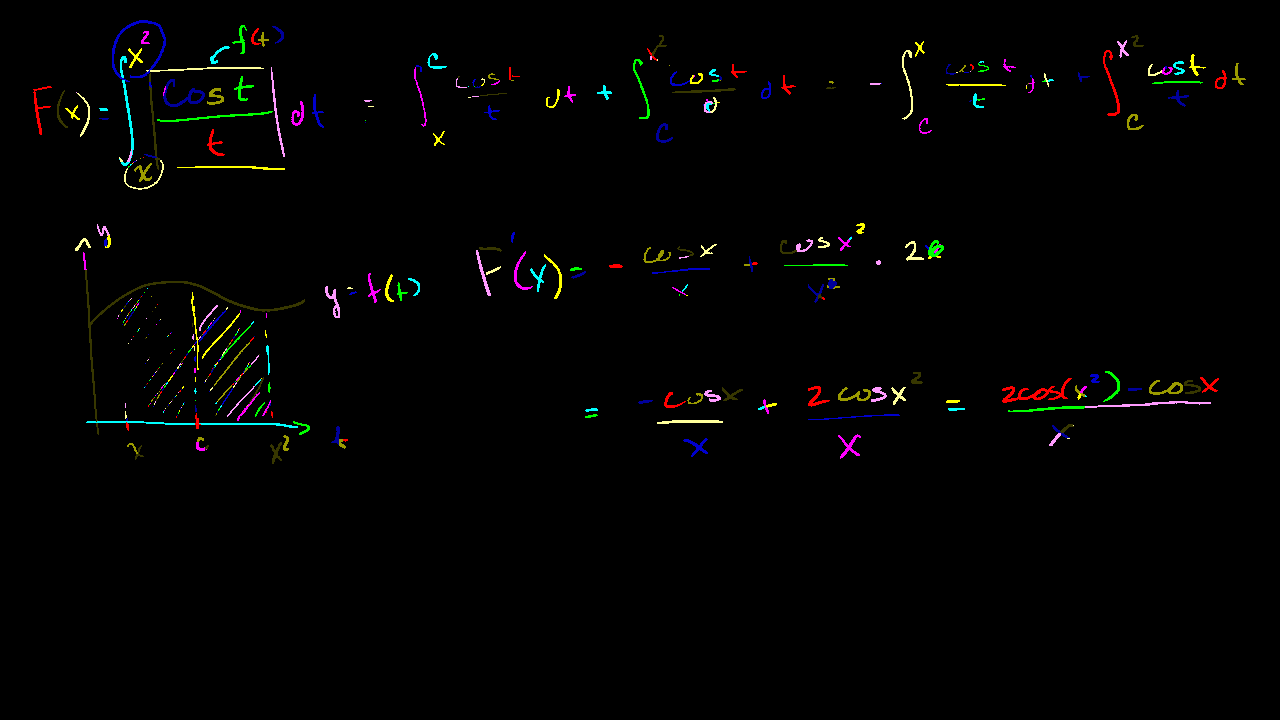 F(x) = ∫_x^{x^2} cos t / t dt = ∫_x^c cos t / t dt + ∫_c^{x^2} cos t / dt = - ∫_c^x cos t / t dt + ∫_c^{x^2} cos t / t dt
f(t)
y
y = f(t)
x c x^2 t
F'(x) = - cos x / x + cos x^2 / x^2 · 2
= - cos x / x + 2 cos x^2 / x = 2cos(x^2) - cos x / x